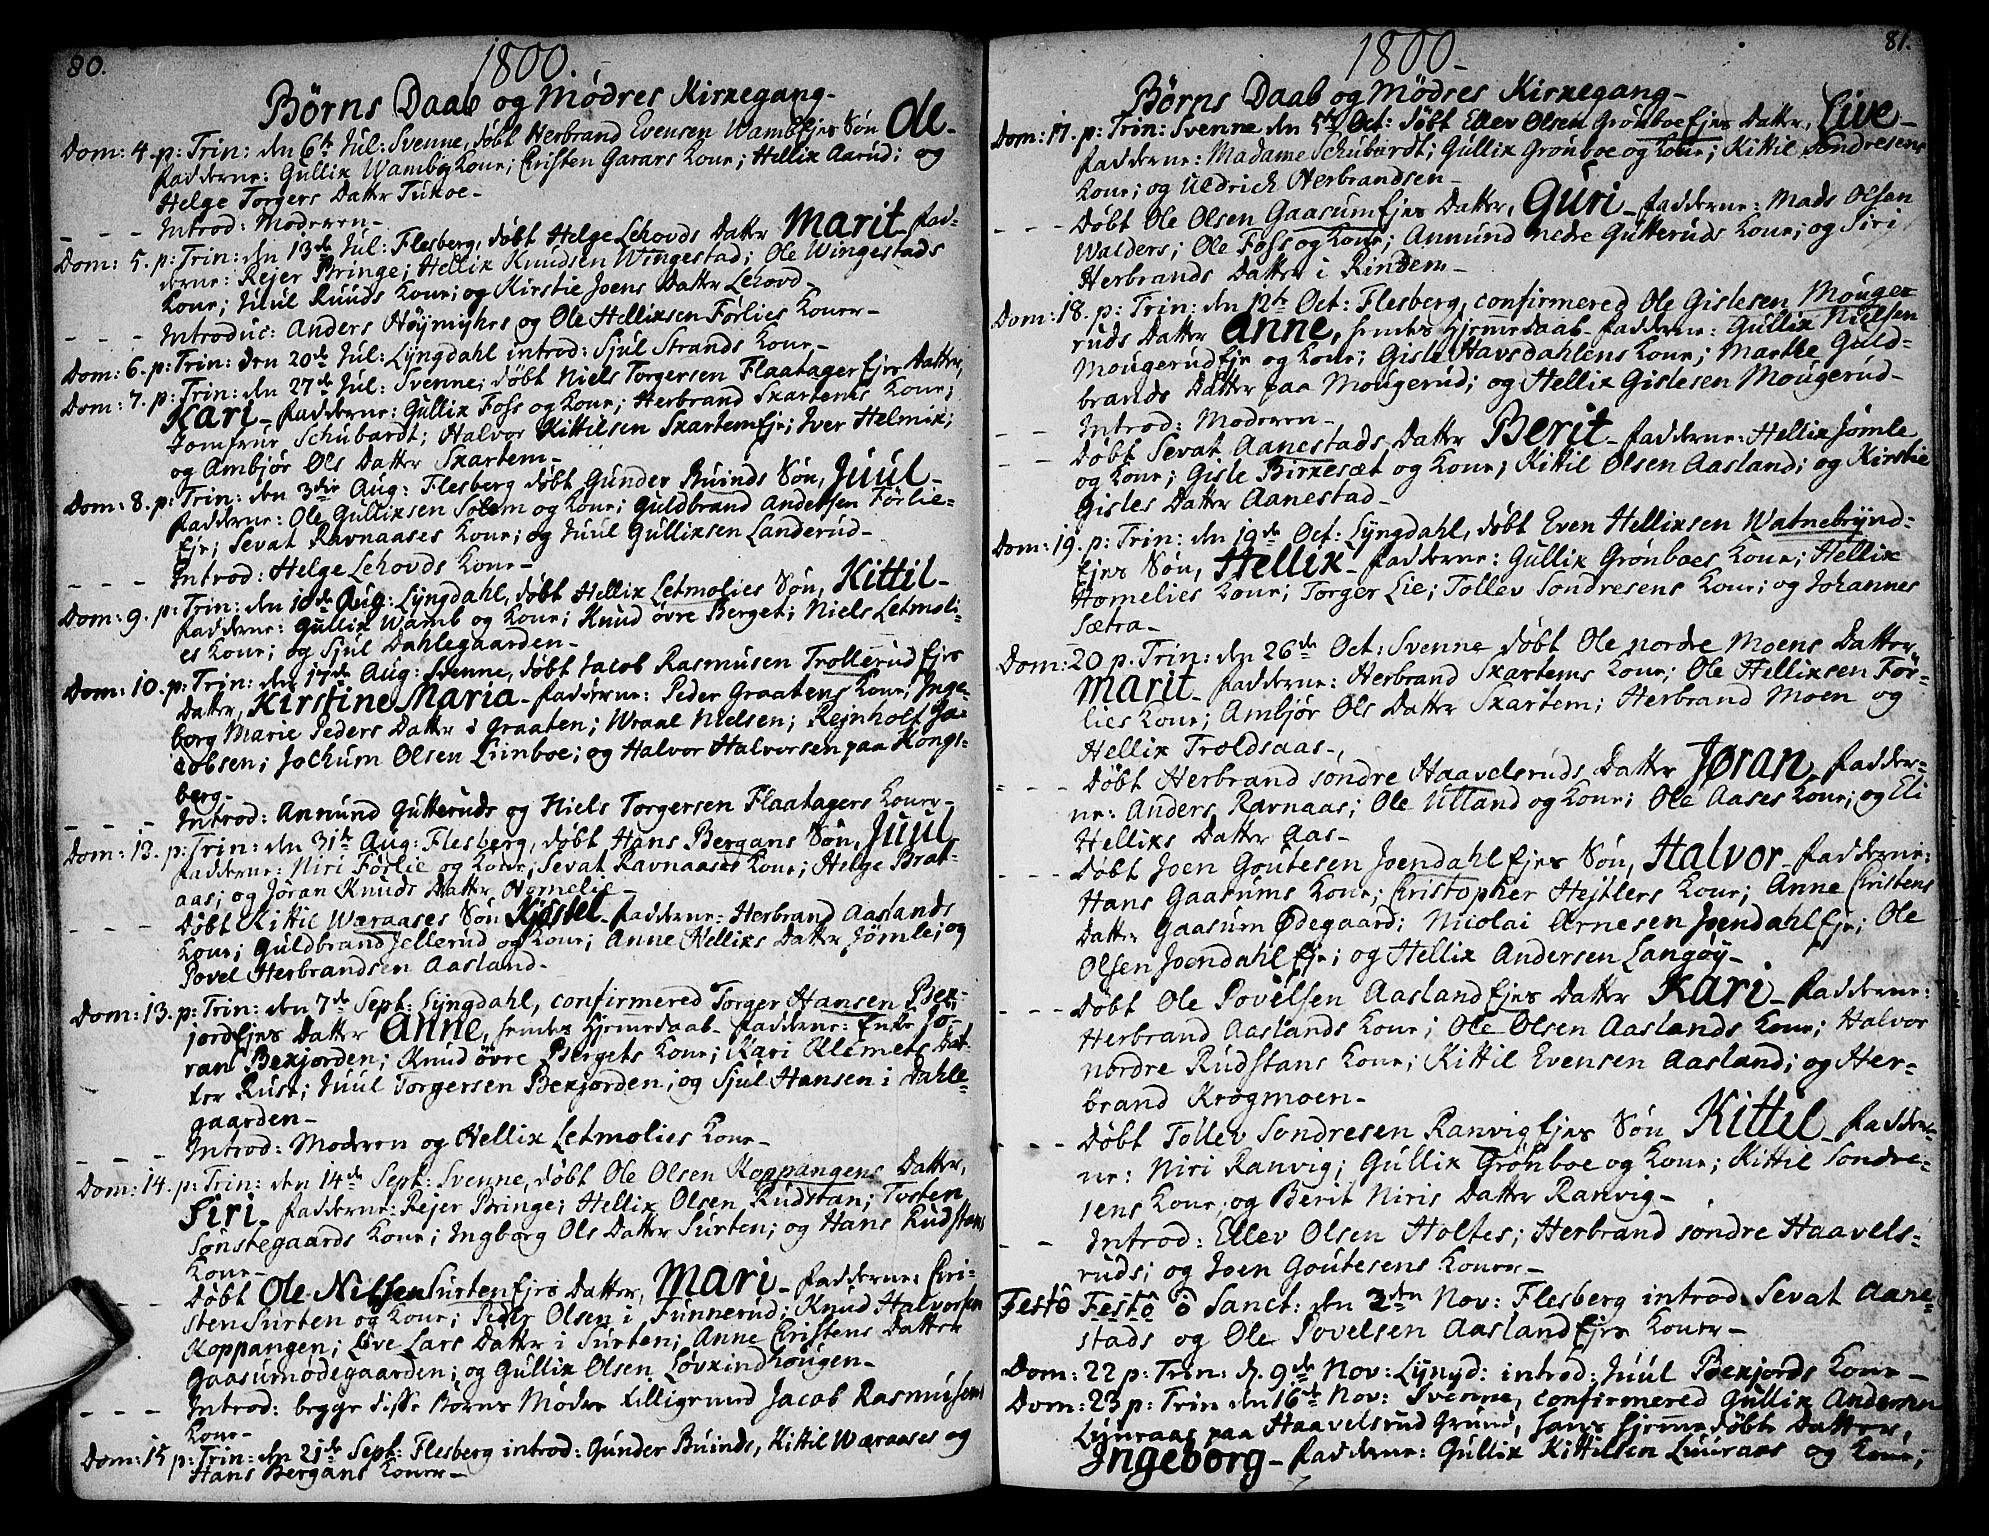 80.
1800.
Børns Daab og Mødres Kirkegang-
Dom: 4. p: Trin: den 6te Jul: Svenne, døbt Herbrand Evensen Wambejes Søn Ole-
fadderne: Gullix Wambs Kone; Cristen Garaas Kone; Hellix Aarud; og
Helge Torgers Datter Tukoe-
- - - Introd: Moderen-
Dom: 5. p: Trin: den 13de Jul: Flesberg, døbt Helge Lehovds Datter Marit- fad-
derne: Rejer Bringe; Hellix Knudsen Wingestad; Ole Wingestads
Kone; Juul Ruuds Kone; og Kirstie Joens Datter Lehovd-
- - - Introduc: Anders Høymyhrs og Ole Hellixsen Førlies Koner-
Dom: 6. p: Trin: den 20de Jul: Lyngdahl introd: Sjul Strands Kone-
Dom: 7. p: Trin: den 27de Jul: Svenne, døbt Niels Torgersen Flaatager Ejes Datter,
Kari- fadderne: Gullix Foss og Kone; Herbrand Skartems Kone;
Jomfrue Schubardt; Halvor Kittilsen Skartem Eje; Iver Helmik;
og Ambjør Ols Datter Skartem-
Dom: 8. p: Trin: den 3die Aug: Flesberg døbt Gunder Buinds Søn, Juul-
fadderne: Ole Gullixsen Solem og Kone; Guldbrand Andersen Førlie-
Eje; Sevat Ravnaases Kone; og Juul Gullixsen Landerud-
- - - Introd: Helge Lehovds Kone-
Dom: 9. p: Trin: den 10de Aug: Lyngdahl, døbt Hellix Letmolies Søn, Kittil-
fadderne: Gullix Wamb og Kone; Knud øvre Berget; Niels Letmoli-
es Kone; og Sjul Dahlegaarden-
Dom: 10. p: Trin: den 17de Aug: Svenne, døbt Jacob Rasmusen Trollerud Ejes
Datter, Kirstine Maria- fadderne: Peder Graatens Kone; Inge-
borg Marie Peders Datter i Graaten; Wraal Nielsen; Rejnholt Ja-
cobsen; Jochum Olsen Liinboe; og Halvor Halvorsen paa Kongs-
berg-
- - - Introd: Annund Gutteruds og Niels Torgersen Flaatagers Koner-
Dom: 12. p: Trin: den 31te Aug: Flesberg, døbt Hans Bergans Søn, Juul
fadderne: Niri Førlie og Kone; Sevat Ravnaases Kone; Helge Brat-
aas; og Jøran Knuds Datter Homelie-
- - - Døbt Kittil Wæraases Søn Kjøstel- fadderne: Herbrand Aaslands
Kone; Guldbrand Jellerud og Kone; Anne Hellixs Datter Jømle; og
Povel Herbrandsen Aasland-
Dom: 13. p: Trin: den 7de Sept: Lyngdahl, confirmered Torger Hansen Bek-
jord Ejes Datter Anne, hendes Hjemedaab- fadderne: Enke Jø-
ran Bekjorden; Knud øvre Bergets Kone; Kari Klemets Dat-
ter Rust; Juul Torgersen Bekjorden; og Sjul Hansen i Dahle-
gaarden-
- - - Introd: Moderen og Hellix Letmolies Kone-
Dom: 14. p: Trin: den 14de Sept: Svenne, døbt Ole Olsen Koppangens Datter,
Siri- fadderne: Rejer Bringe; Hellix Olsen Rudstan; Tosten
Sønstegaards Kone; Ingborg Ols Datter Surten; og Hans Rudstans
Kone-
- - Døbt Ole Nilsen Surten Ejes Datter, Mari- fadderne: Cri-
sten Surten og Kone; Peder Olsen i Funnerud; Knud Halvorsen
Koppangen; Live Lars Datter i Surten; Anne Cristens Datter
Gaasumødegaarden; og Gullix Olsen Løvkindhougen-
- - - Introd: begge disse Børns Mødre tilligemed Jacob Rasmusens
Kone-
Dom: 15 p: Trin: den 21de Sept: Flesberg introd: Gunder Buinds, Kittil Wæraases og
Hans Bergans Koner-
81.
1800-
Børns Daab og Mødres Kirkegang-
Dom: 17. p: Trin: Svenne den 5te Oct: døbt Ellev Olsen Grønboe Ejes Datter, Live-
fadderne: Madame Schubardt; Gullix Grønboe og Kone; Kittil Sondresens
Kone; og Uldrich Herbrandsen-
- - - Døbt Ole Olsen Gaasum Ejes Datter, Guri- fadderne: Mads Olsen
Walders; Ole Foss og Kone; Annund nedre Gutteruds Kone; og Siri
Herbrands Datter i Rindem-
Dom: 18. p: Trin: den 12te Oct: Flesberg, confirmered Ole Gislesen Mouge-
ruds Datter Anne, hendes Hjemedaab- fadderne: Gullix Nielsen
Mougerud Eje og Kone; Gisle Havsdahlens Kone; Marthe Guld-
brands Datter paa Mougerud; og Hellix Gislesen Mougerud-
- - Introd: Moderen-
- - Døbt Sevat Aanestads Datter Berit- fadderne: Hellix Jømle
og Kone; Gisle Birkesæt og Kone; Kittil Olsen Aasland; og Kirstie
Gisles Datter Aanestad-
Dom: 19. p: Trin: den 19de Oct: Lyngdahl, døbt Even Hellixsen Watnebrynd-
Ejes Søn, Hellix- fadderne: Gullix Grønboes Kone; Hellix
Homelies Kone; Torger Lie; Tollev Sondresens Kone; og Johannes
Sætra-
Dom: 20 p. Trin: den 26de Oct: Svenne døbt Ole nordre Moens Datter
Marit- fadderne: Herbrand Skartems Kone; Ole Hellixsen Før-
lies Kone; Ambjør Ols Datter Skartem; Herbrand Moen og
Hellix Troldsaas-
- - - Døbt Herbrand søndre Haavelsruds Datter Jøran, fadder-
ne: Anders Ravnaas; Ole Ulland og Kone; Ole Aases Kone; og Eli
Hellixs Datter Aas-
- - - Døbt Joen Goutesen Joendahl Ejes Søn, Halvor- fadderne:
Hans Gaasums Kone; Cristopher Hejtlers Kone; Anne Cristens
Datter Gaasum Ødegaard; Nicolai Arnesen Joendahl Eje; Ole
Olsen Joendahl Eje; og Hellix Andersen Langøy-
- - - Døbt Ole Povelsen Aasland Ejes Datter Kari- fadderne:
Herbrand Aaslands Kone; Ole Olsen Aaslands Kone; Halvor
nordre Rudstans Kone; Kittil Evensen Aasland; og Her-
brand Krogmoen-
- - - Døbt Tollev Sondresen Ranvig Ejes Søn Kittil- fadder-
ne: Niri Ranvig; Gullix Grønboe og Kone; Kittil Sondre-
sens Kone; og Berit Niris Datter Ranvig-
- - Introd: Ellev Olsen Holtes; Herbrand søndre Haavels-
ruds; og Joen Goutesens Koner-
Festô Festô ô Sanct: den 2den Nov: Flesberg introd: Sevat Aane-
stads og Ole Povelsen Aasland Ejes Koner-
Dom: 22 p: Trin: d. 9de Nov: Lyngd: introd: Juul Bekjords Kone-
Dom: 23 p: Trin den 16de Nov: Svenne, confirmered Gullix Andersen
Liuraas paa Haavelsrud Grund, hans hjemmedøbte Datter,
Ingeborg- fadderne: Gullix Kittilsen Liuraas og Kone;